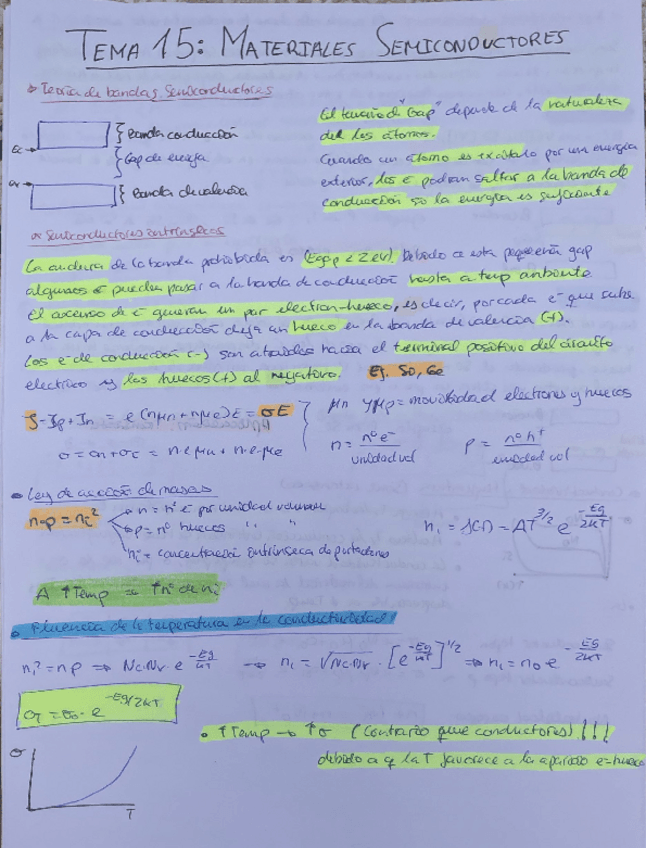 TEMA 15: MATERIALES SEMICONDUCTORES
Teoría de bandas. Semiconductores
Ec
Banda conducción
Gap de energía
Ev
Banda de valencia
El tamaño del "Gap" depende de la naturaleza
de los átomos.
Cuando un átomo es excitado por una energía
exterior, los e⁻ podrían saltar a la banda de
conducción si la energía es suficiente
Semiconductores intrínsecos
La anchura de la banda prohibida es (Egap < 2 eV). Debido a esta pequeña gap
algunos e⁻ pueden pasar a la banda de conducción hasta a temp ambiente
el ascenso de e⁻ generan un par electron-hueco, es decir, por cada e⁻ que sube
a la capa de conducción deja un hueco en la banda de valencia (+).
Los e⁻ de conducción (-) son atraídos hacia el terminal positivo del circuito
electrico y los huecos (+) al negativo. Ej. Si, Ge
J = Jp + Jn = e(nμn + nμe)E = σE
σ = σn + σe = n·e·μn + n·e·μe
μn y μp = movilidad electrones y huecos
n = nº e⁻ / unidad vol
p = nº h⁺ / unidad vol
Ley de acción de masas
n·p = ni²
n = nº e⁻ por unidad volumen
p = nº huecos " "
ni = concentración intrínseca de portadores
ni = f(T) = AT^3/2 e^-Eg/2kT
A ↑Temp ⇒ ↑nº de ni
Fluencia de la temperatura en la conductividad!
ni² = np ⇒ Nc·Nv · e^-Eg/kT → ni = √Nc·Nv · [e^-Eg/kT]^1/2 ⇒ ni = n0 e^-Eg/2kT
σ = σ0 · e^-Eg/2kT
↑Temp → ↑σ (Contrario que conductores)!!!
debido a q la T favorece a la aparición e⁻-hueco
σ
T